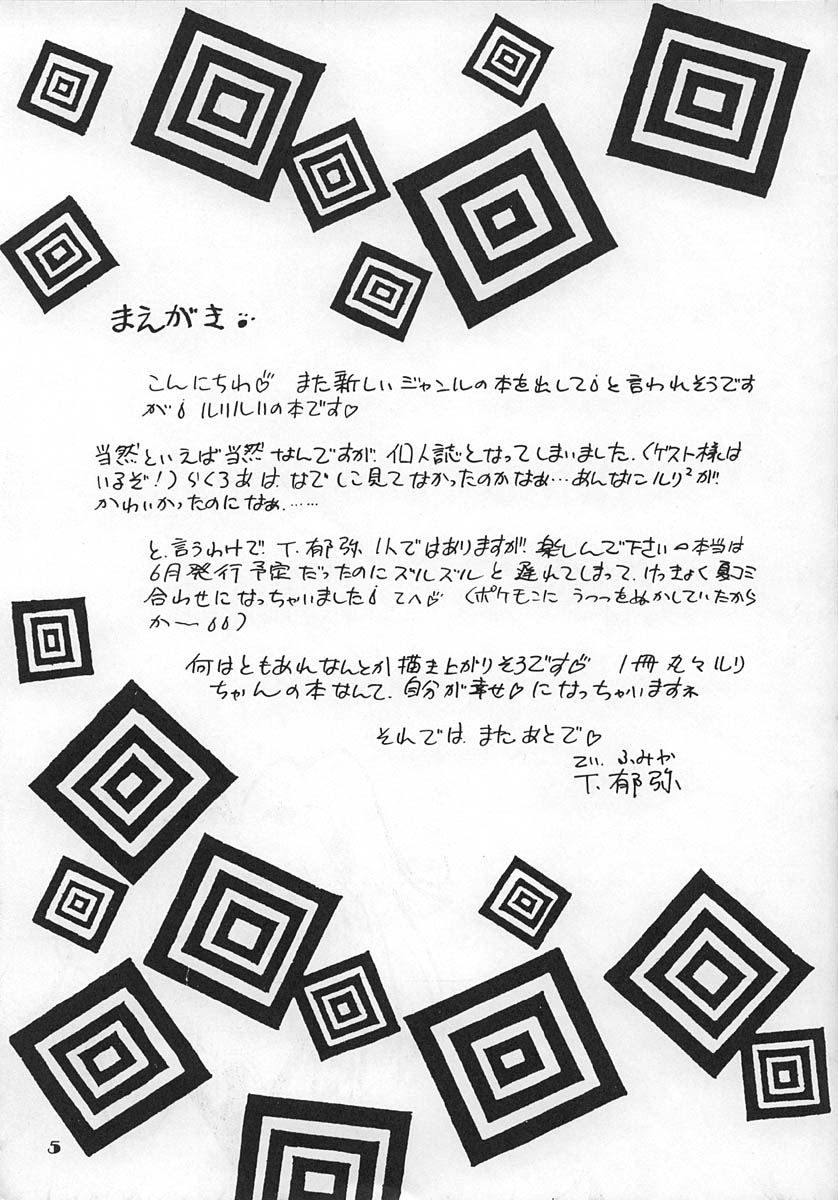 まえがき
こんにちわ♡ また新しいジャンルの本を出して！と言われそうです
が！ルリルリの本です♡
当然といえば当然なんですが、個人誌となってしまいました.(ゲスト様は
いるぞ!)らくろあは、なでしこ見てなかったのかなぁ…あんなにルリ²が
かわいかったのになぁ.……
と、言うわけで、T.郁弥 1人ではありますが、楽しんで下さい 本当は
6月発行予定だったのにズルズルと遅れてしまって、けっきょく夏コミ
合わせになっちゃいました！てへ♡ (ポケモンにうつつをぬかしていたから
か〜)
何はともあれなんとか描き上がりそうです♡ 1冊丸々ルリ
ちゃんの本なんて、自分が幸せ♡になっちゃいますネ
それでは、またあとで♡
てぃ. ふみや
T.郁弥
5